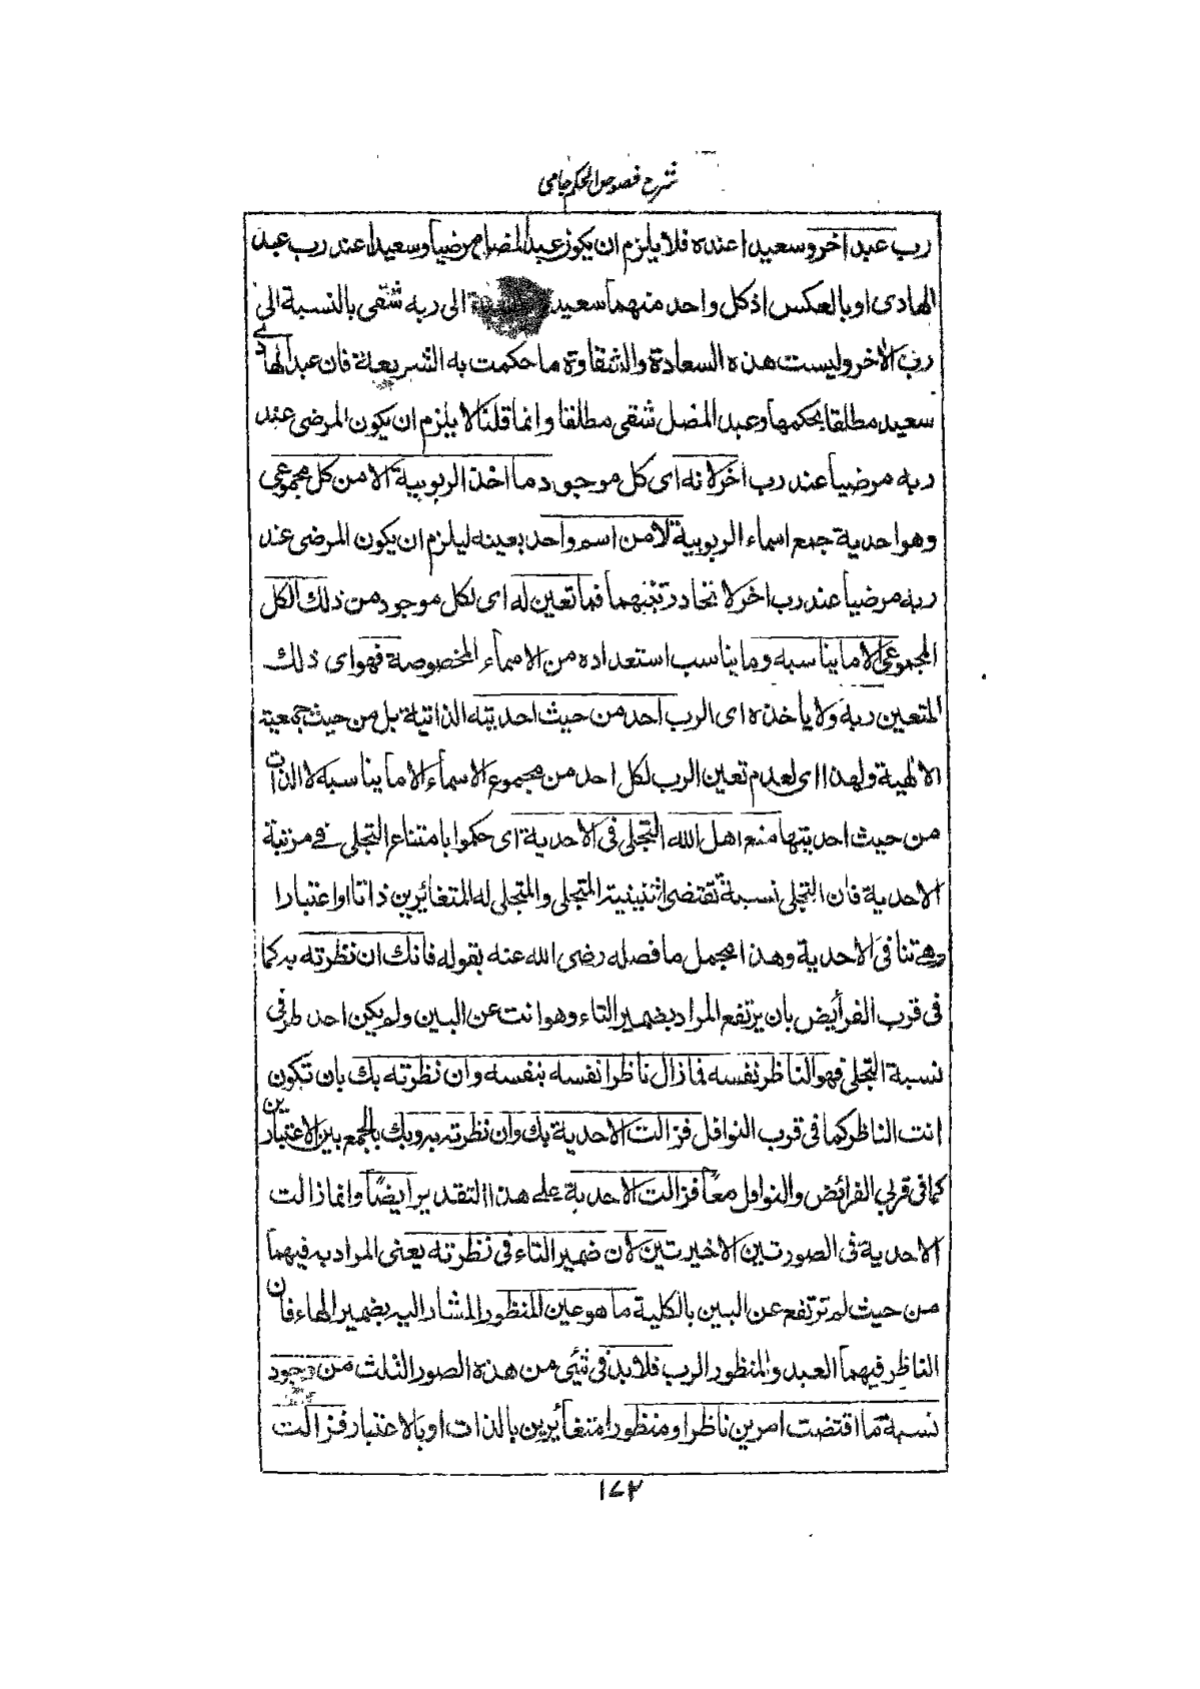 شرح فصوص الحكم جامى
رب عبد اخر وسعيدا عنده فلا يلزم ان يكون عبد المضل مرضياً وسعيدا عند رب عبد
الهادى او بالعكس اذ كل واحد منهما سعيد الى ربه شقى بالنسبة الى
رب الاخر وليست هذه السعادة والشقاوة ما حكمت به الشريعة فان عبد الهادى
سعيد مطلقا بحكمها وعبد المضل شقى مطلقا وانما قلنا لا يلزم ان يكون المرضى عند
ربه مرضياً عند رب اخر لانه اى كل موجود ما اخذ الربوبية الا من كل مجموعى
وهو احدية جمع اسماء الربوبية لا من اسم واحد بعينه ليلزم ان يكون المرضى عند
ربه مرضياً عند رب اخر لاتحاد ربيهما فما تعين له اى لكل موجود من ذلك الكل
المجموعى الا ما يناسبه وما يناسب استعداده من الاسماء المخصوصة فهو اى ذلك
المتعين ربه ولا ياخذه اى الرب احد من حيث احديته الذاتية بل من حيث جمعيته
الالهية ولهذا اى لعدم تعين الرب لكل احد من مجموع الاسماء الا ما يناسبه لا الذات
من حيث احديتها منع اهل الله التجلى فى الاحدية اى حكموا بامتناع التجلى فى مرتبة
الاحدية فان التجلى نسبة تقتضى اثنينية المتجلى والمتجلى له المتغائرين ذاتا او اعتبارا
وهى تنافى الاحدية وهذا مجمل ما فصله رضى الله عنه بقوله فانك ان نظرته به كما
فى قرب الفرائض بان يرتفع المراد بضمير التاء وهو انت عن البين ولم يكن احد طرفى
نسبة التجلى فهو الناظر نفسه فما زال ناظرا نفسه بنفسه وان نظرته بك بان تكون
انت الناظر كما فى قرب النوافل فزالت الاحدية بك وان نظرته به وبك بالجمع بين الاعتبارين
كما فى قربى الفرائض والنوافل معاً فزالت الاحدية على هذا التقدير ايضاً وانما زالت
الاحدية فى الصورتين الاخيرتين لان ضمير التاء فى نظرته يعنى المراد به فيهما
من حيث لم ترتفع عن البين بالكلية ما هو عين المنظور المشار اليه بضمير الهاء فان
الناظر فيهما العبد والمنظور الرب فلا بد فى شئ من هذه الصور الثلث من وجود
نسبة ما اقتضت امرين ناظرا ومنظورا متغائرين بالذات او بالاعتبار فزالت
١٧٢